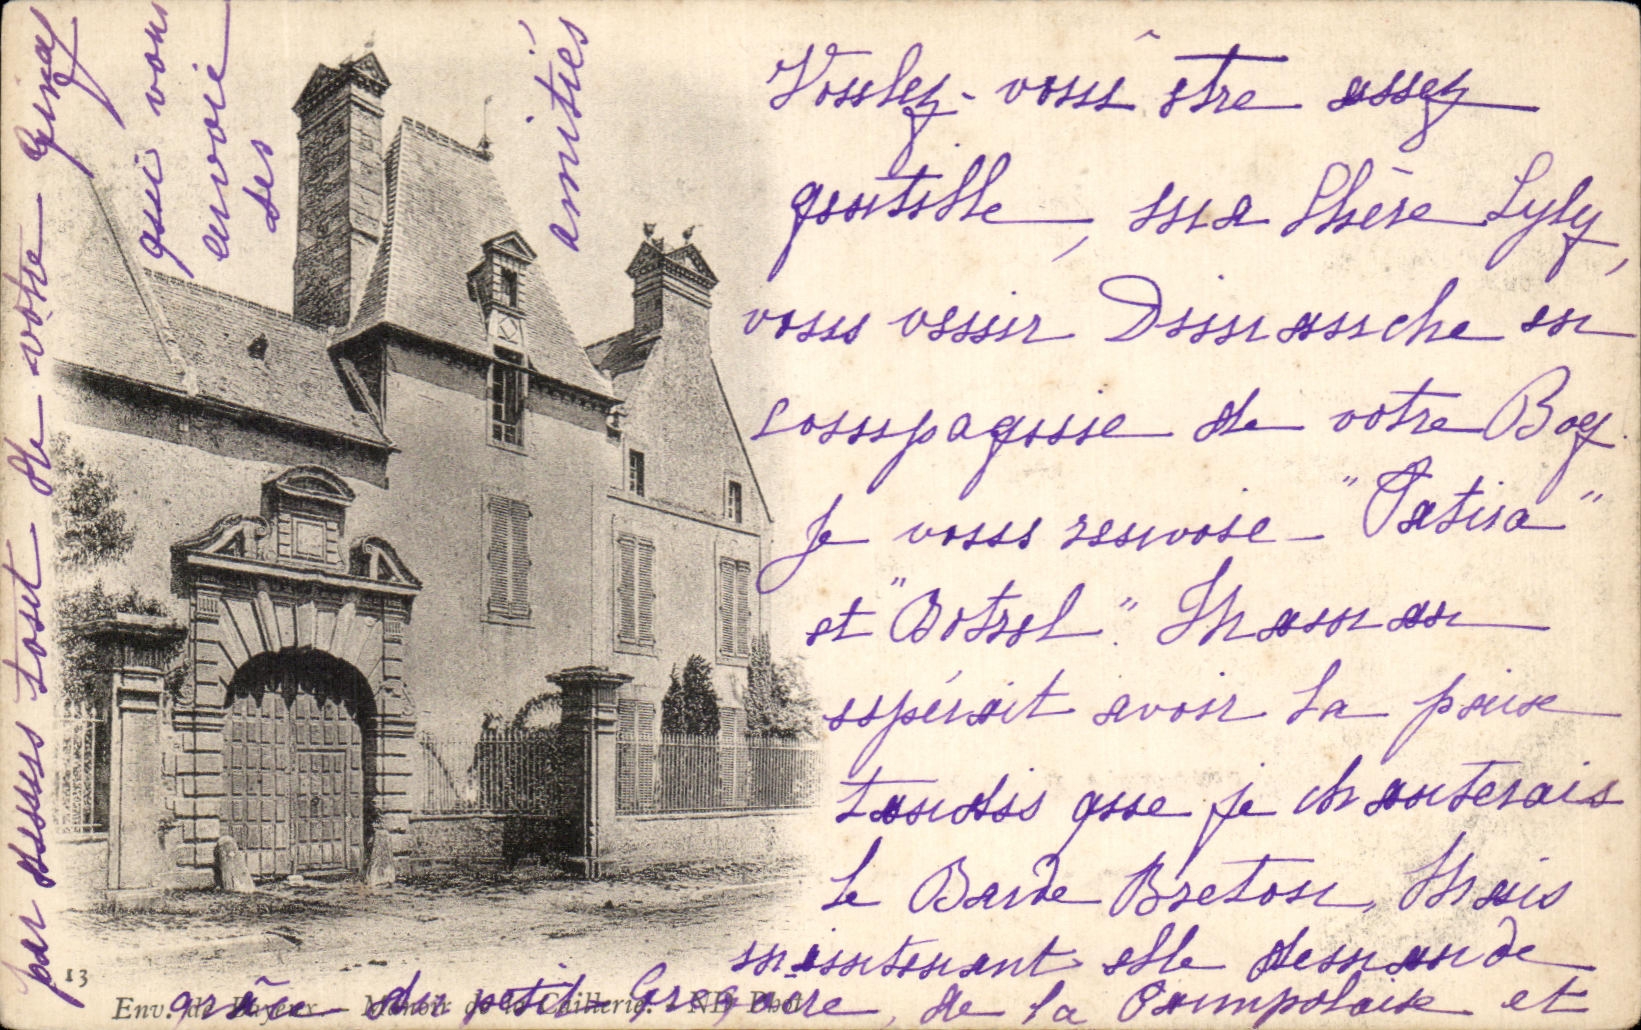 Voulez-vous être assez
gentille, ma Chère Lyly,
vous venir Dimanche en
compagnie de votre Boy.
Je vous renvoie "Patira"
et "Botrel". Maman
espérait avoir la paix
tandis que je chanterais
le Barde Breton, Mais
maintenant elle demande
grâce du petit Grégoire, de la Paimpolaise et
par dessus tout de votre
qui vous
envoie
ses
amitiés
13
Env. de Bayeux. - Manoir de la Caillerie. - ND Phot